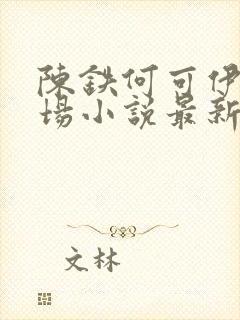 陳鉄何可伊
場小説最新
文林